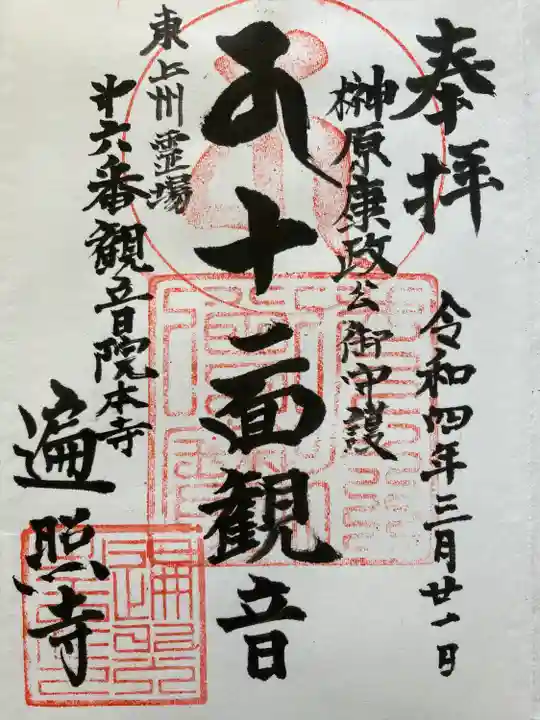 奉拝
令和四年三月廿一日
榊原康政公御守護
十一面観音
東上州霊場
第六番観音院本寺
遍照寺